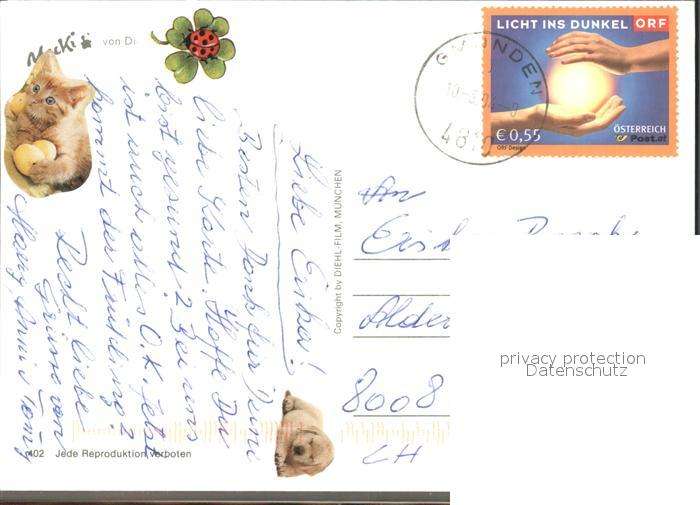 Mecki
von Di
LICHT INS DUNKEL ORF
€ 0,55
ÖSTERREICH
Post.at
ORF Design
GMUNDEN
4810
Liebe Erika!
Besten Dank für Deine
liebe Karte. Hoffe Du
bist gesund? Bei uns
ist auch alles O.K. Jetzt
kommt der Frühling?
Recht liebe
Grüsse von
Copyright by DIEHL-FILM, MÜNCHEN
An
Erika
Alder
8008
CH
402 Jede Reproduktion verboten
privacy protection
Datenschutz